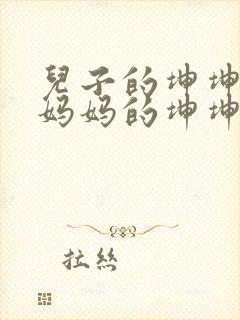 兒子的坤坤
妈妈的坤坤
拉絲